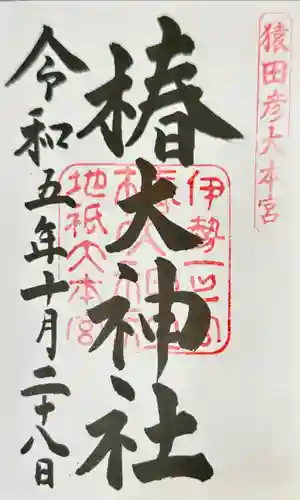 猿田彦大本宮
椿大神社
伊勢一之宮
椿大神社
地祇大本宮
令和五年十月二十八日